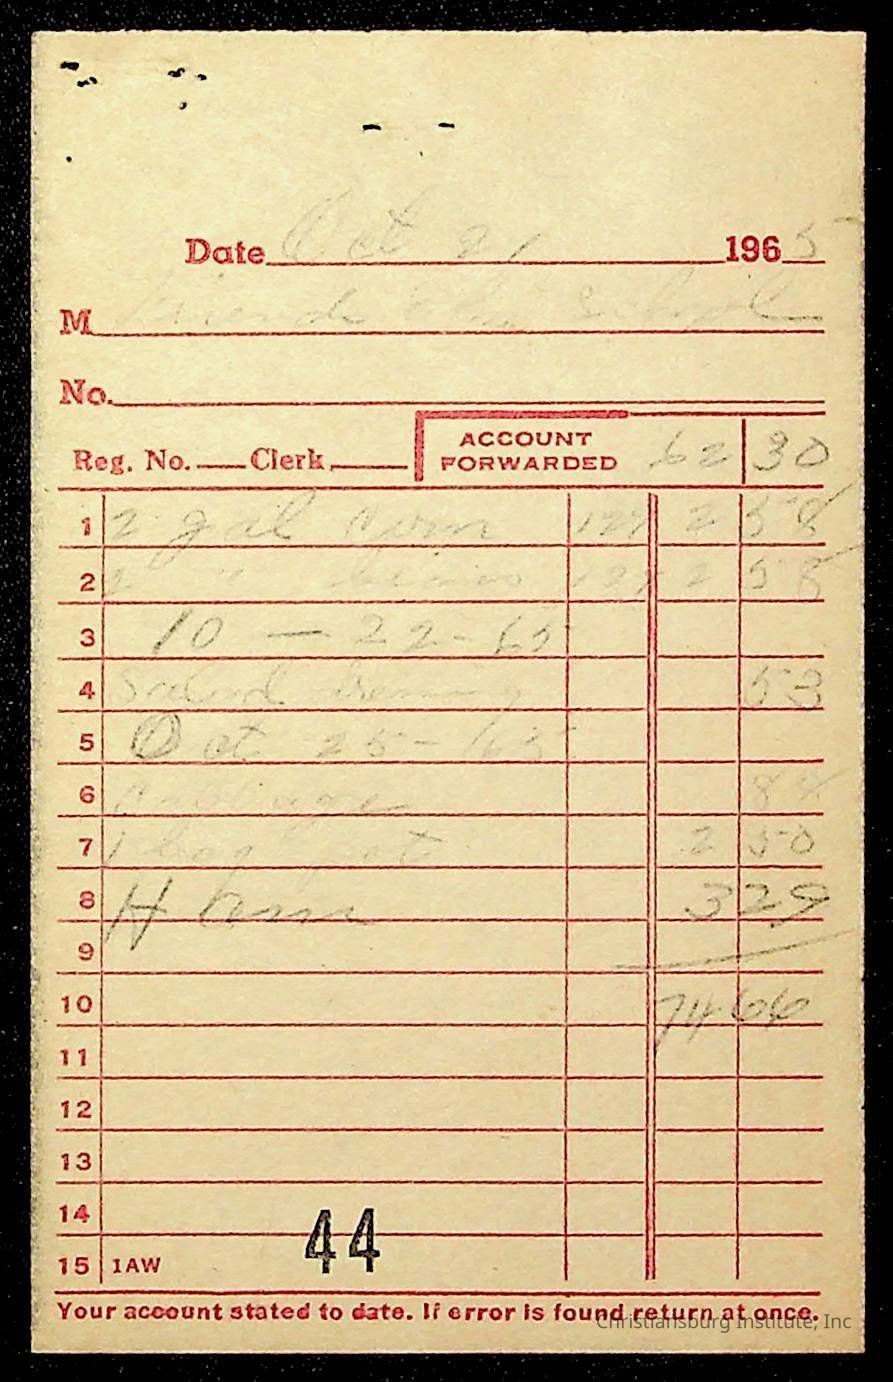 Date Oct 21 1965
M Friends Elem School
No.
Reg. No. Clerk ACCOUNT FORWARDED 62 30
1 2 gal corn 129 2 58
2 2 " beans 129 2 58
3 10 - 22 - 65
4 Salad dressing 53
5 Oct 25 - 65
6 Cabbage 88
7 1 bag pot 2 50
8 Ham 3 29
9
10 74 66
11
12
13
14
44
15 1AW
Your account stated to date. If error is found return at once.
Christiansburg Institute, Inc